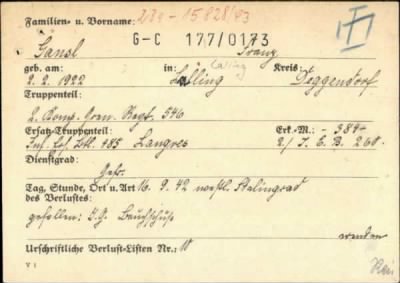 Familien- u. Vorname: 230-15828/43
G-C 177/0173
Gansl Franz
geb. am: in: Lalling Kreis:
2. 2. 1922 Lalling Deggendorf
Truppenteil:
2. Komp. Gren. Regt. 546
Ersatz-Truppenteil: Erk.-M.: -384-
Inf. Ers. Btl. 485 Langres 2./ J. E. B. 260.
Dienstgrad:
Gefr.
Tag, Stunde, Ort u. Art 16. 9. 42 nordtl. Stalingrad
des Verlustes:
gefallen: I.G. Bauchschuß
wenden
Urschriftliche Verlust-Listen Nr.: 10
V 1